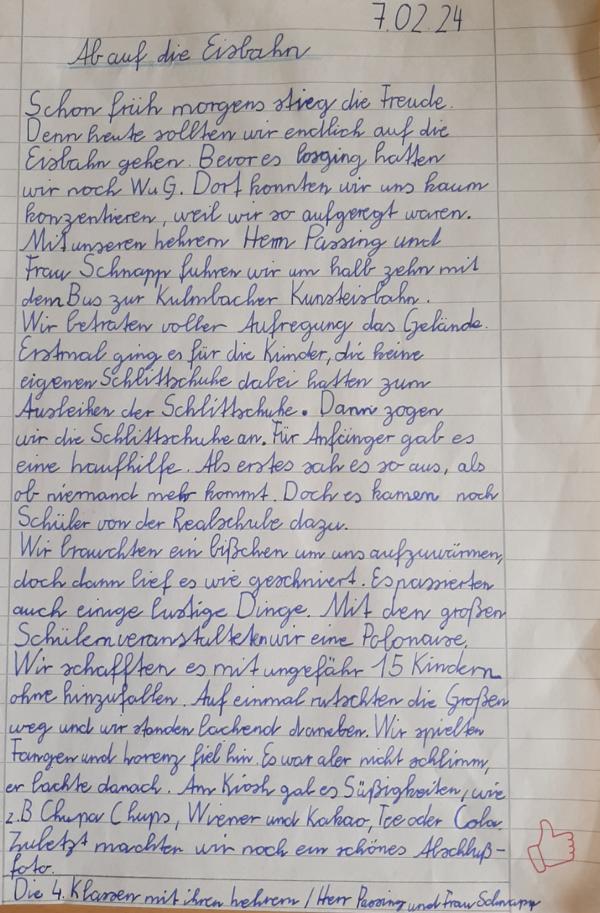 7.02.24
Ab auf die Eisbahn
Schon früh morgens stieg die Freude.
Denn heute sollten wir endlich auf die
Eisbahn gehen. Bevor es losging hatten
wir noch WuG. Dort konnten wir uns kaum
konzentieren, weil wir so aufgeregt waren.
Mit unseren Lehrern Herrn Passing und
Frau Schnapp fuhren wir um halb zehn mit
dem Bus zur Kulmbacher Kunsteisbahn.
Wir betraten voller Aufregung das Gelände.
Erstmal ging es für die Kinder, die keine
eigenen Schlittschuhe dabei hatten zum
Ausleihen der Schlittschuhe. Dann zogen
wir die Schlittschuhe an. Für Anfänger gab es
eine Laufhilfe. Als erstes sah es so aus, als
ob niemand mehr kommt. Doch es kamen noch
Schüler von der Realschule dazu.
Wir brauchten ein bißchen um uns aufzuwärmen,
doch dann lief es wie geschmiert. Es passierten
auch einige lustige Dinge. Mit den großen
Schülern veranstalteten wir eine Polonaise.
Wir schafften es mit ungefähr 15 Kindern
ohne hinzufallen. Auf einmal rutschten die Großen
weg und wir standen lachend daneben. Wir spielten
Fangen und Lorenz fiel hin. Es war aber nicht schlimm,
er lachte danach. Am Kiosk gab es Süßigkeiten, wie
z.B Chupa Chups, Wiener und Kakao, Tee oder Cola.
Zuletzt machten wir noch ein schönes Abschluß-
foto.
Die 4. Klassen mit ihren Lehrern / Herr Passing und Frau Schnapp